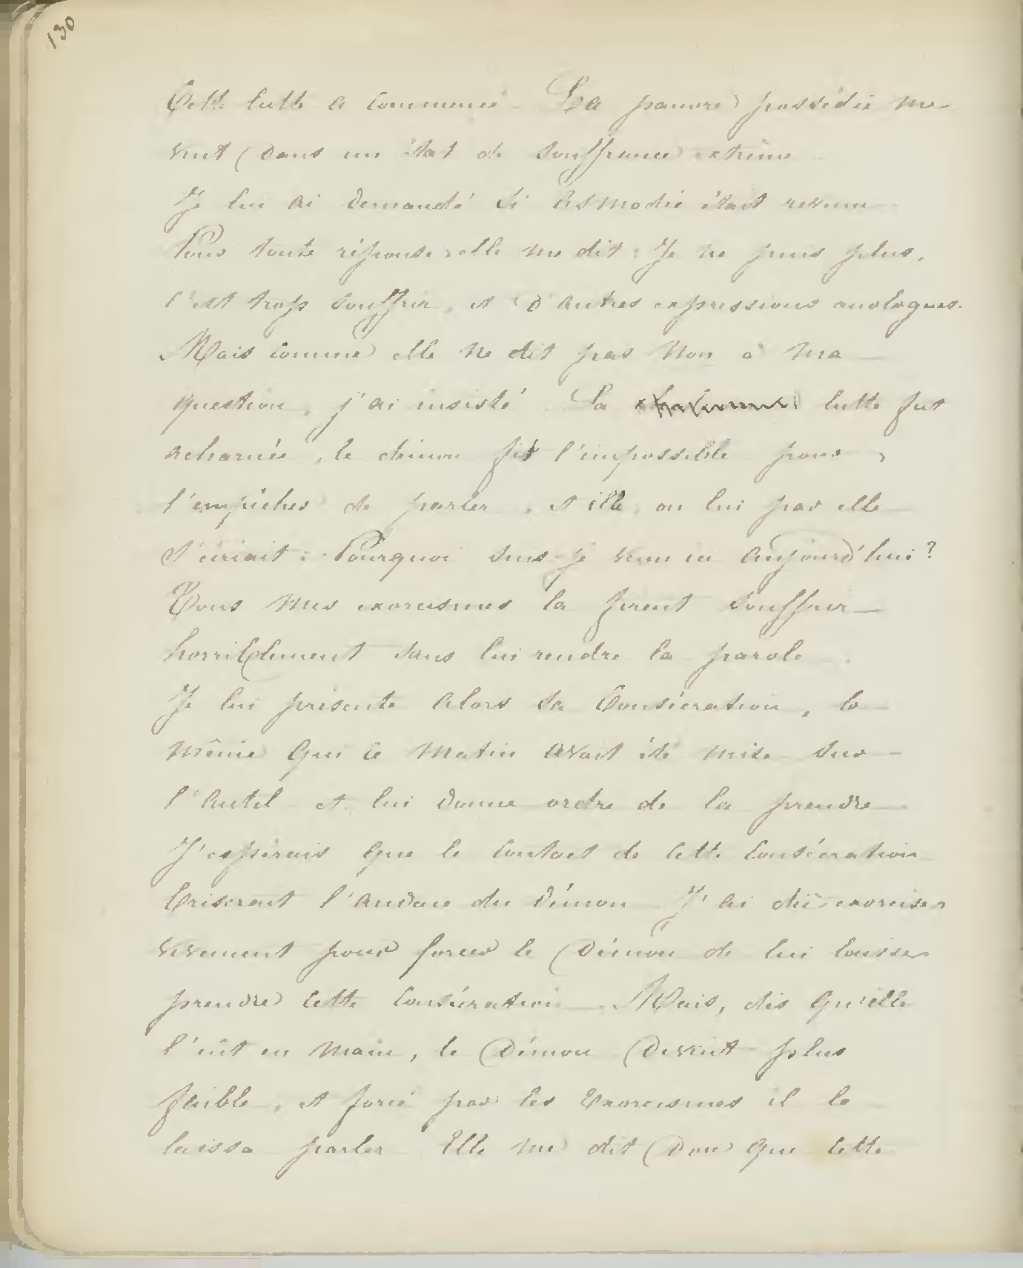 130
Cette lutte a commencé. La pauvre possédée me
vint dans un état de souffrance extrême.
Je lui ai demandé si Asmodée était revenu.
Pour toute réponse elle me dit : Je ne puis plus,
c'est trop souffrir, et d'autres expressions analogues.
Mais comme elle ne dit pas non à ma
question, j'ai insisté. La lutte fut
acharnée, le démon fit l'impossible pour
l'empêcher de parler, et elle, ou lui par elle
s'écriait : Pourquoi suis-je venu ici aujourd'hui ?
Tous mes exorcismes la firent souffrir
horriblement sans lui rendre la parole.
Je lui présente alors sa Consécration, la
même qui ce matin avait été mise sur
l'autel et lui donne ordre de la prendre.
J'espérais que le contact de cette consécration
briserait l'audace du démon. J'ai dû exorciser
vivement pour forcer le Démon de lui laisser
prendre cette consécration. Mais, dès qu'elle
l'eût en main, le Démon devint plus
faible, et forcé par les exorcismes il la
laissa parler. Elle me dit donc que cette